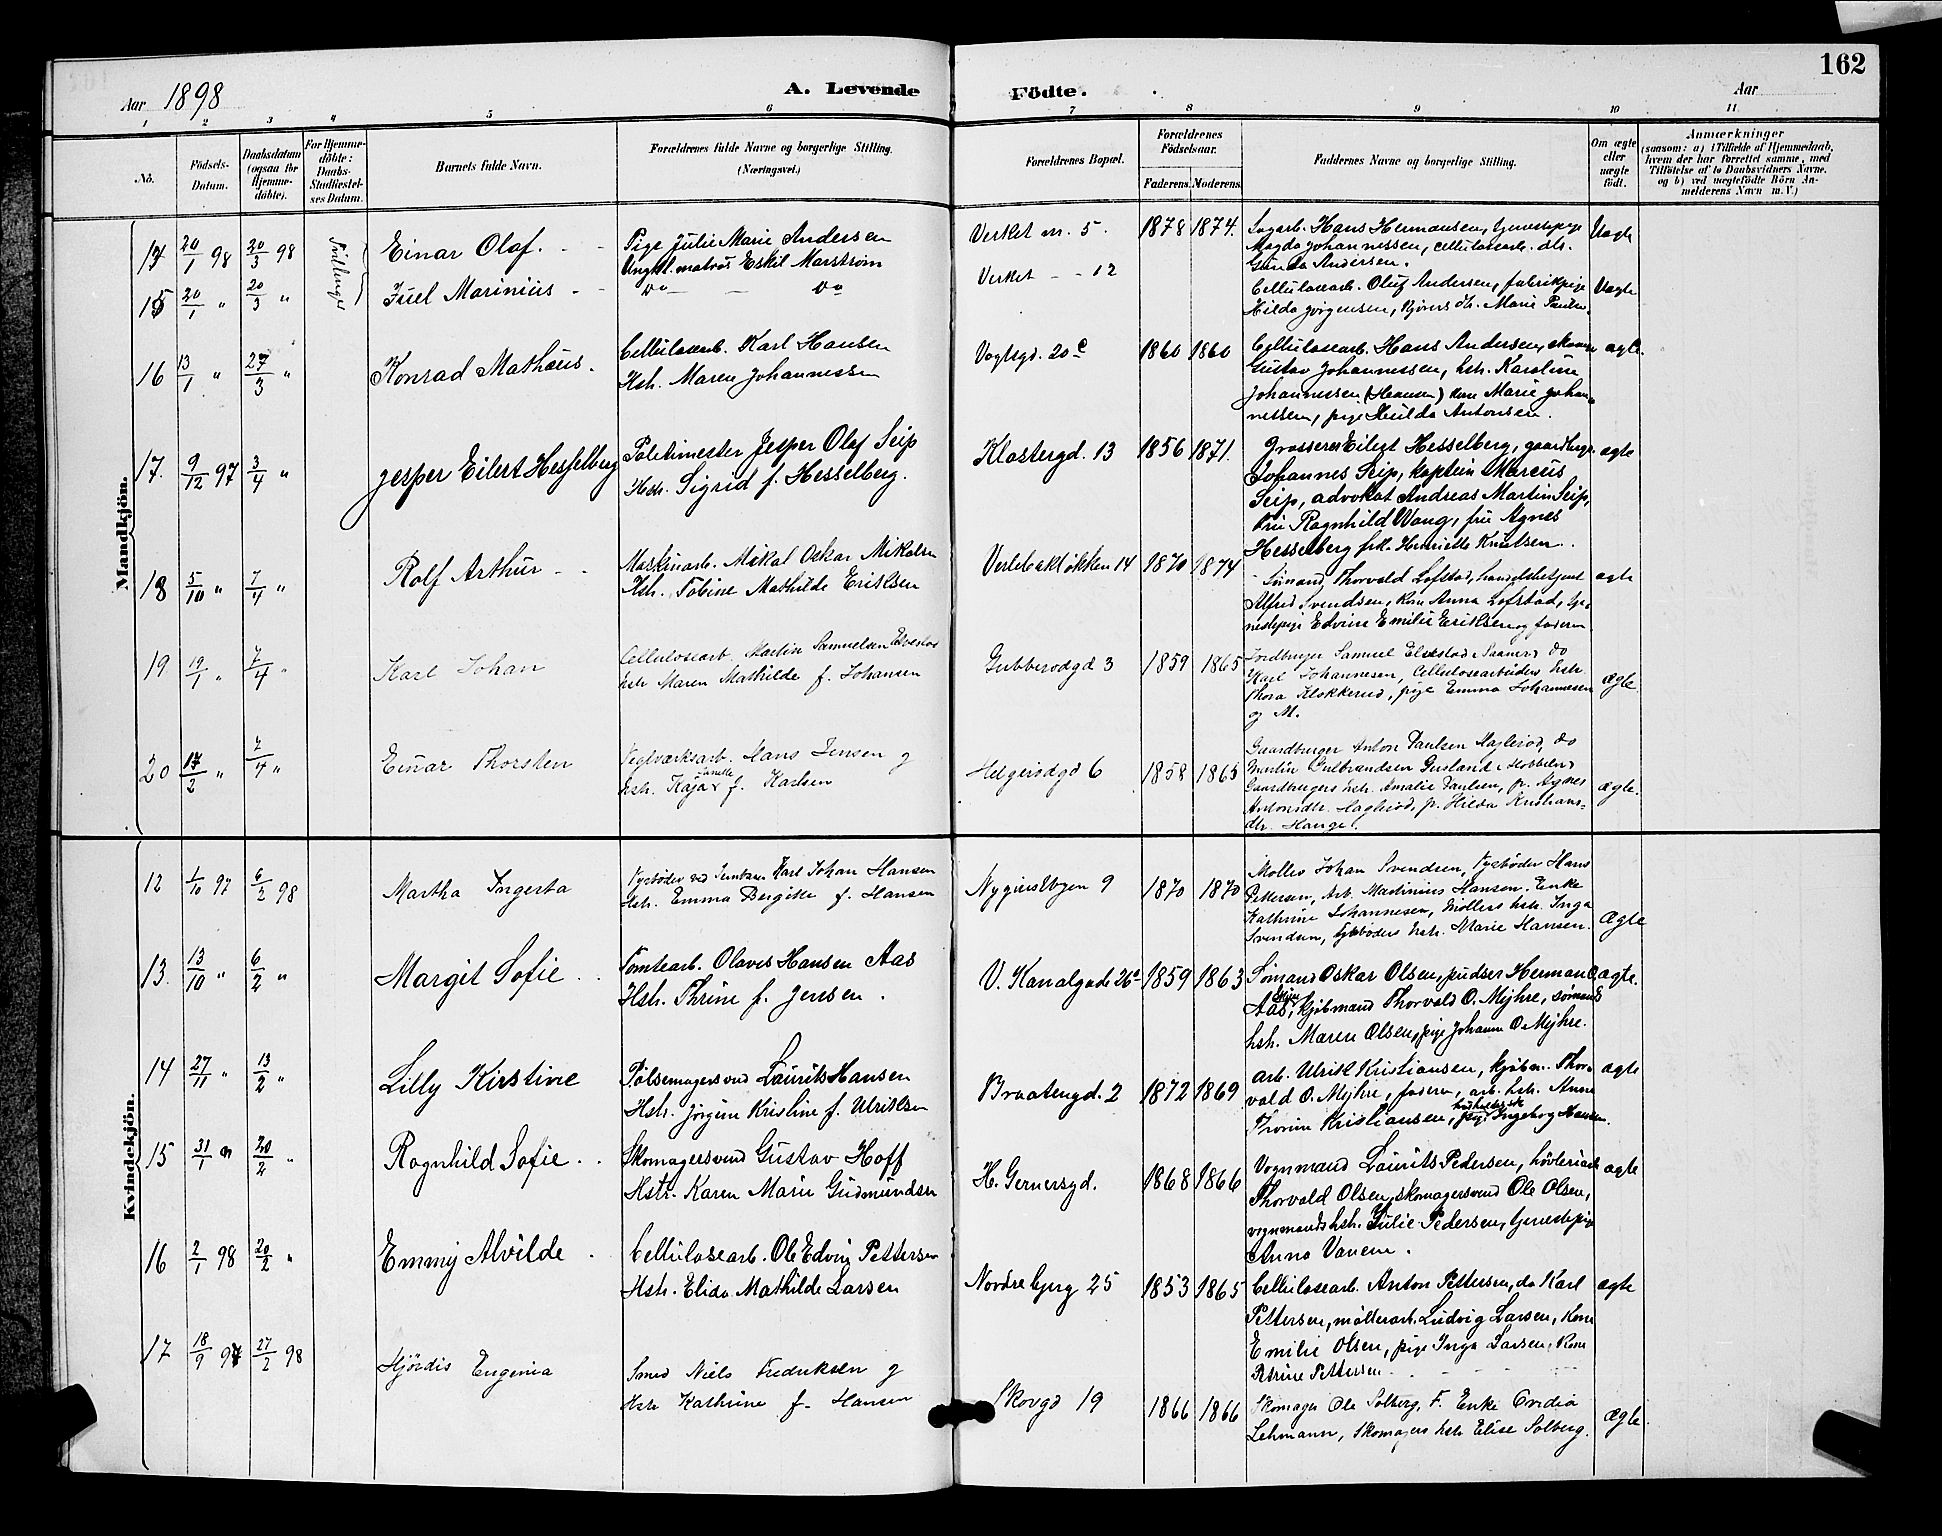 162
Aar 1898
A. Levende Födte.
Aar
1 2 3 4 5 6 7 8 9 10 11
No.
Födsels-Datum.
Daabsdatum (ogsaa for Hjemmedöbte).
For Hjemmedöbte: Daabs-Stadfæstelses Datum.
Barnets fulde Navn.
Forældrenes fulde Navne og borgerlige Stilling. (Næringsvei.)
Forældrenes Bopæl.
Forældrenes Födselsaar.
Faderens. Moderens.
Faddernes Navne og borgerlige Stilling.
Om ægte eller uægte födt.
Anmærkninger
(saasom: a) i Tilfælde af Hjemmedaab,
hvem der har forrettet samme, med
Tilföielse af to Daabsvidners Navne.
og b) ved uægtefödte Börn An-
melderens Navn m. V.)
Mandkjön.
14 20/1 98 20/3 98 Tvillinger Einar Olaf. Pige Julie Marie Andersen
Ungk. matros Eskil Marstrøm
Verket n. 5. 1878 1874. Sagarb. Hans Hermansen, tjenestepige
Magda Johannessen, cellulosearb. dtr.
Gunda Andersen. Uægte
15 20/1 " 20/3 " Juel Marinius Do Do
Verket - - 12 Cellulosearb. Oluf Andersen, fabrikpige
Hilda Jørgensen, Marie Paulsen Uægte
16 13/1 " 27/3 " Konrad Mathæus. Cellulosearb. Karl Hansen
Hstr. Maren Johannessen
Vogtsgd. 20 c 1860 1860 Cellulosearb. Hans Andersen,
Gustav Johannessen, hstr. Karoline
Johannessen (Hansen) Kone Marie Johan-
nessen, pige Hulda Antonsen. ægte.
17. 9/12 97 3/4 " Jesper Eilert Hesselberg Politimester Jesper Olaf Seip
Hstr. Sigrid f. Hesselberg.
Klostergd. 13 1856 1871. Grosserer Eilert Hesselberg, gaardbrger
Johannes Seip, kaptein Marcus
Seip, advokat Andreas Martin Seip,
Frue Ragnhild Wang, frue Agnes
Hesselberg frk. Henriette Knudsen. ægte
18 5/10 " 7/4 " Rolf Arthur Maskinarb. Mikal Oskar Mikalsen
Hstr. Tobine Mathilde Eriksen
Verlebakløkken 14 1870 1874 Sömand Thorvald Lofstad, handelsbetjent
Alfred Svendsen, Kone Anna Lofstad, tje-
nestepige Edvine Emilie Eriksen og faderen ægte
19 19/1 " 7/4 " Karl Johan Cellulosearb. Martin Samuelsen Elvestad
hstr Maren Mathilde f. Johansen
Gubberødgd 3 1859 1865 Jordbruger Samuel Elvestad i Saaner, do
Karl Johannesen, Cellulosearbeiders hstr.
Thora Klokkerud, pige Emma Johannesen
og M. ægte
20 14/2 " 7/4 " Einar Thorsten Teglværksarb. Hans Jensen og
hstr. Kaja f. Karlsen
Helgerødgd 6 1858 1865 Gaardbruger Anton Paulsen Haglerød, do
Martin Gulbrandsen i Hobbøl,
Gaardbrugers hstr. Amalie Paulsen, p. Agnes
Antonsdtr. Haglerød, p. Hilda Kristians-
dtr. Hauge. ægte.
Kvindekjön.
12 1/10 97 6/2 98 Martha Ingerta Karl Johan Hansen
Hstr. Emma Bergitte f. Hansen
9 1870 1870 Møller Johan Svendsen, Hans
Pettersen, Arb. Martinius Hansen. Enke
Kathrine Johannesen, Møllers hstr. Inga
Svendsen, hstr. Marie Hansen. ægte
13. 13/10 " 6/2 " Margit Sofie Tomtearb. Olaves Hansen Aas
Hstr. Thrine f. Jensen.
V. Kanalgade 26 a 1859 1863 Sømand Oskar Olsen, pudser Herman O.
Aas, kjøbmand Thorvald O. Mejhre, sømands
hstr. Maren Olsen, pige Johanne O. Mejhre. ægte.
14 27/11 " 13/2 " Lilly Kirstine Pølsemagersvend Laurits Hansen
Hstr. Jørgine Kristine f. Ulriksen
Braatengd. 2 1872 1869 Arb. Ulrik Kristiansen, kjøbm. Thor-
vald O. Mejhre, faderen, arb. hstr. Anne
Thorine Kristiansen, Ingeborg Hansen. ægte
15 31/1 " 20/2 " Ragnhild Sofie Skomagersvend Gustav Hoff
Hstr. Karen Marie Gudmundsen
H. Gernersgd. 1868 1866 Vognmand Laurits Pedersen, høvleriarb
Thorvald Olsen, skomagersvend Ole Olsen,
vognmands hstr. Julie Pedersen, tjenestepige
Anna Vanem. ægte
16 2/1 98 20/2 " Emmy Alvilde Cellulosearb. Ole Edvin Pettersen
Hstr. Elida Mathilde Larsen
Nordre bjerg 25 1853 1865 Cellulosearb. Anton Pettersen, do Karl
Pettersen, møllerarb. Ludvig Larsen, Kone
Emilie Olsen, pige Inga Larsen, Kone
Petrine Pettersen. ægte
17 18/9 97 27/2 98 Hjørdis Eugenia Smed Niels Fredriksen og
hstr Kathrine f. Hansen
Skovgd 19 1866 1866 Skomager Ole Solberg, F. Enke Ovidia
Lehmann, Skomagers hstr Elise Solberg. ægte